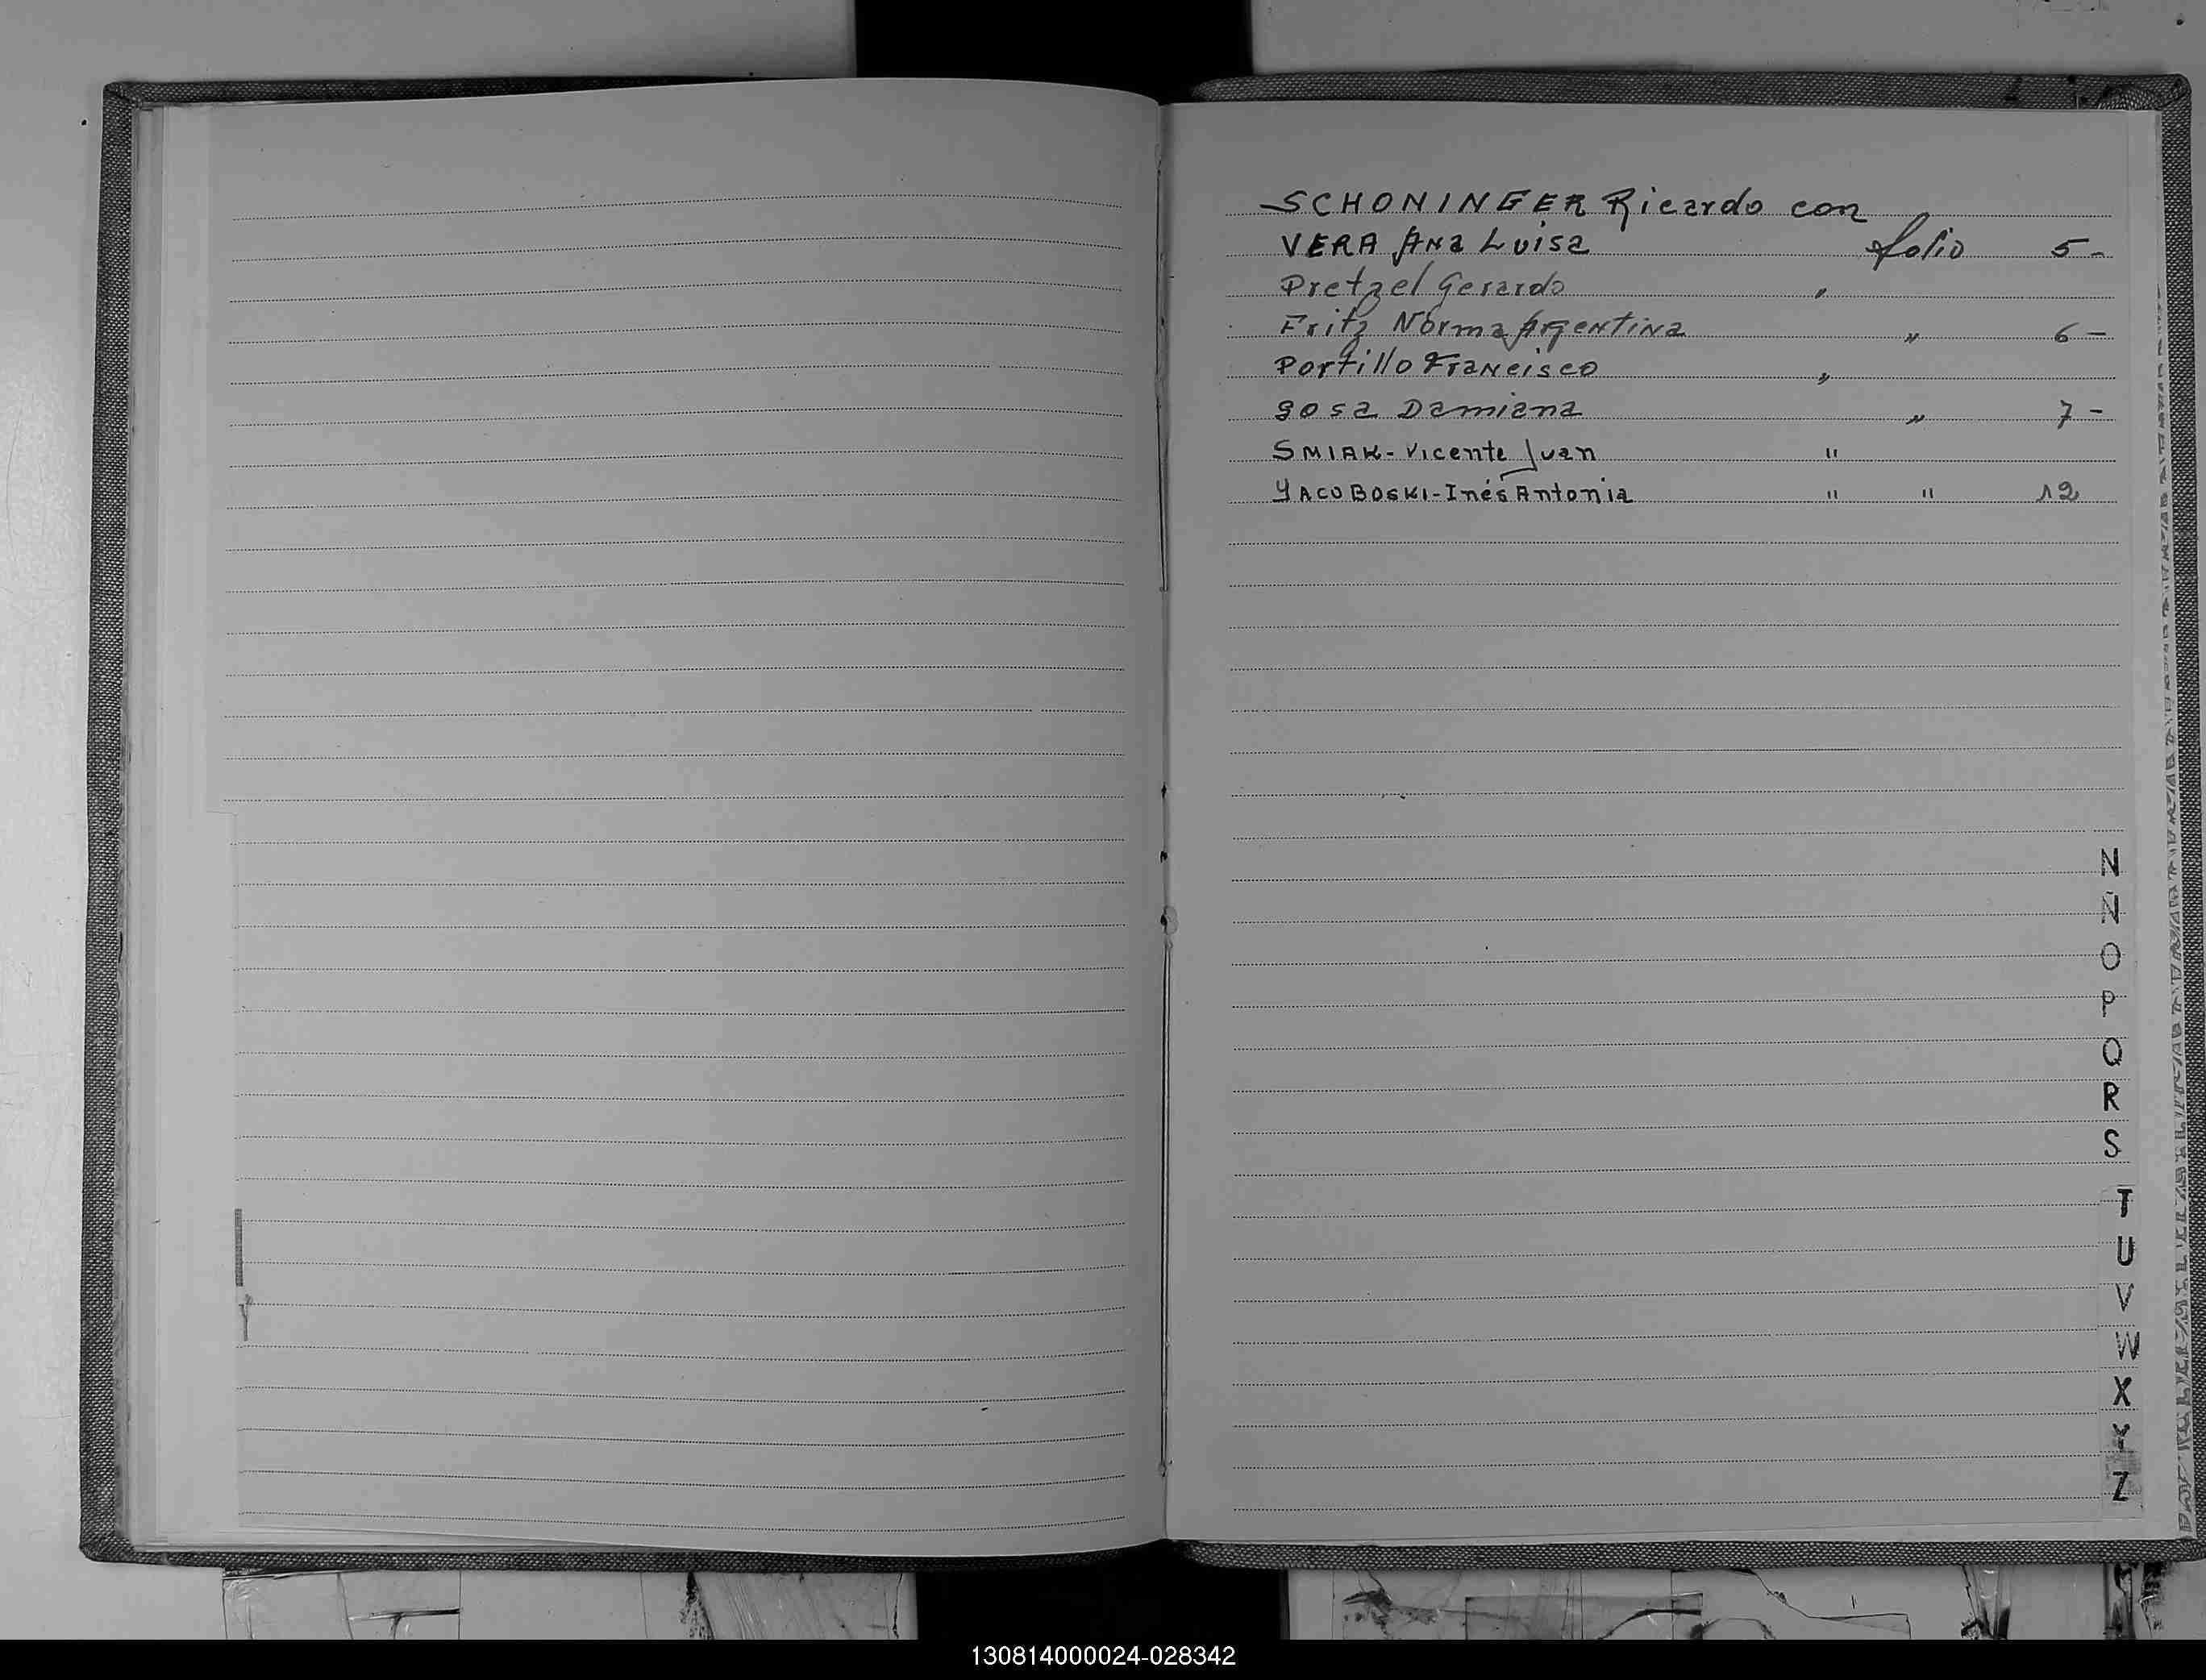 SCHONINGER Ricardo con
VERA Ana Luisa folio 5-
Pretzel Gerardo "
Fritz Norma Argentina " 6-
Portillo Francisco "
Sosa Damiana " 7-
SMIAK- Vicente Juan "
YACOBOSKI-Inés Antonia " " 12
N
Ñ
O
P
Q
R
S
T
U
V
W
X
Y
Z
130814000024-028342